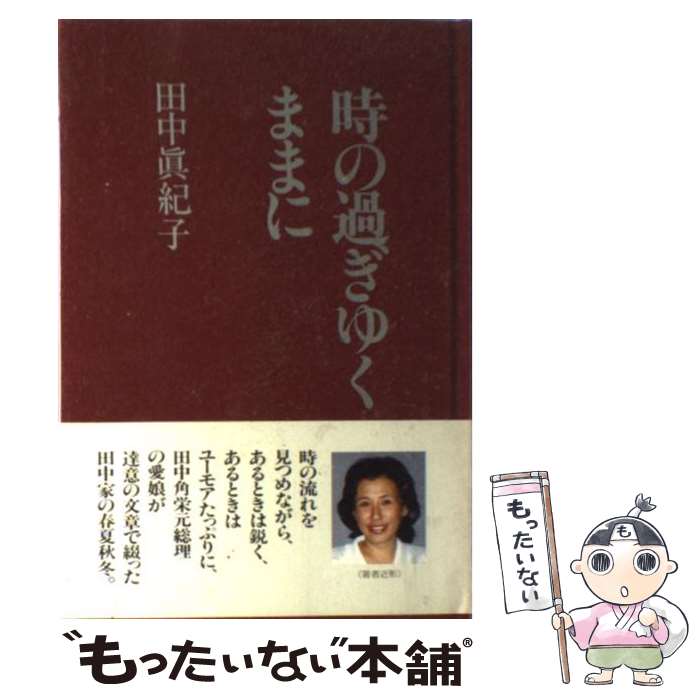 時の過ぎゆく
ままに
田中眞紀子
時の流れを
見つめながら、
あるときは鋭く、
あるときは
ユーモアたっぷりに、
田中角栄元総理
の愛娘が
達意の文章で綴った
田中家の春夏秋冬。
(著者近影)
もったいない
"もったいない"本舗®